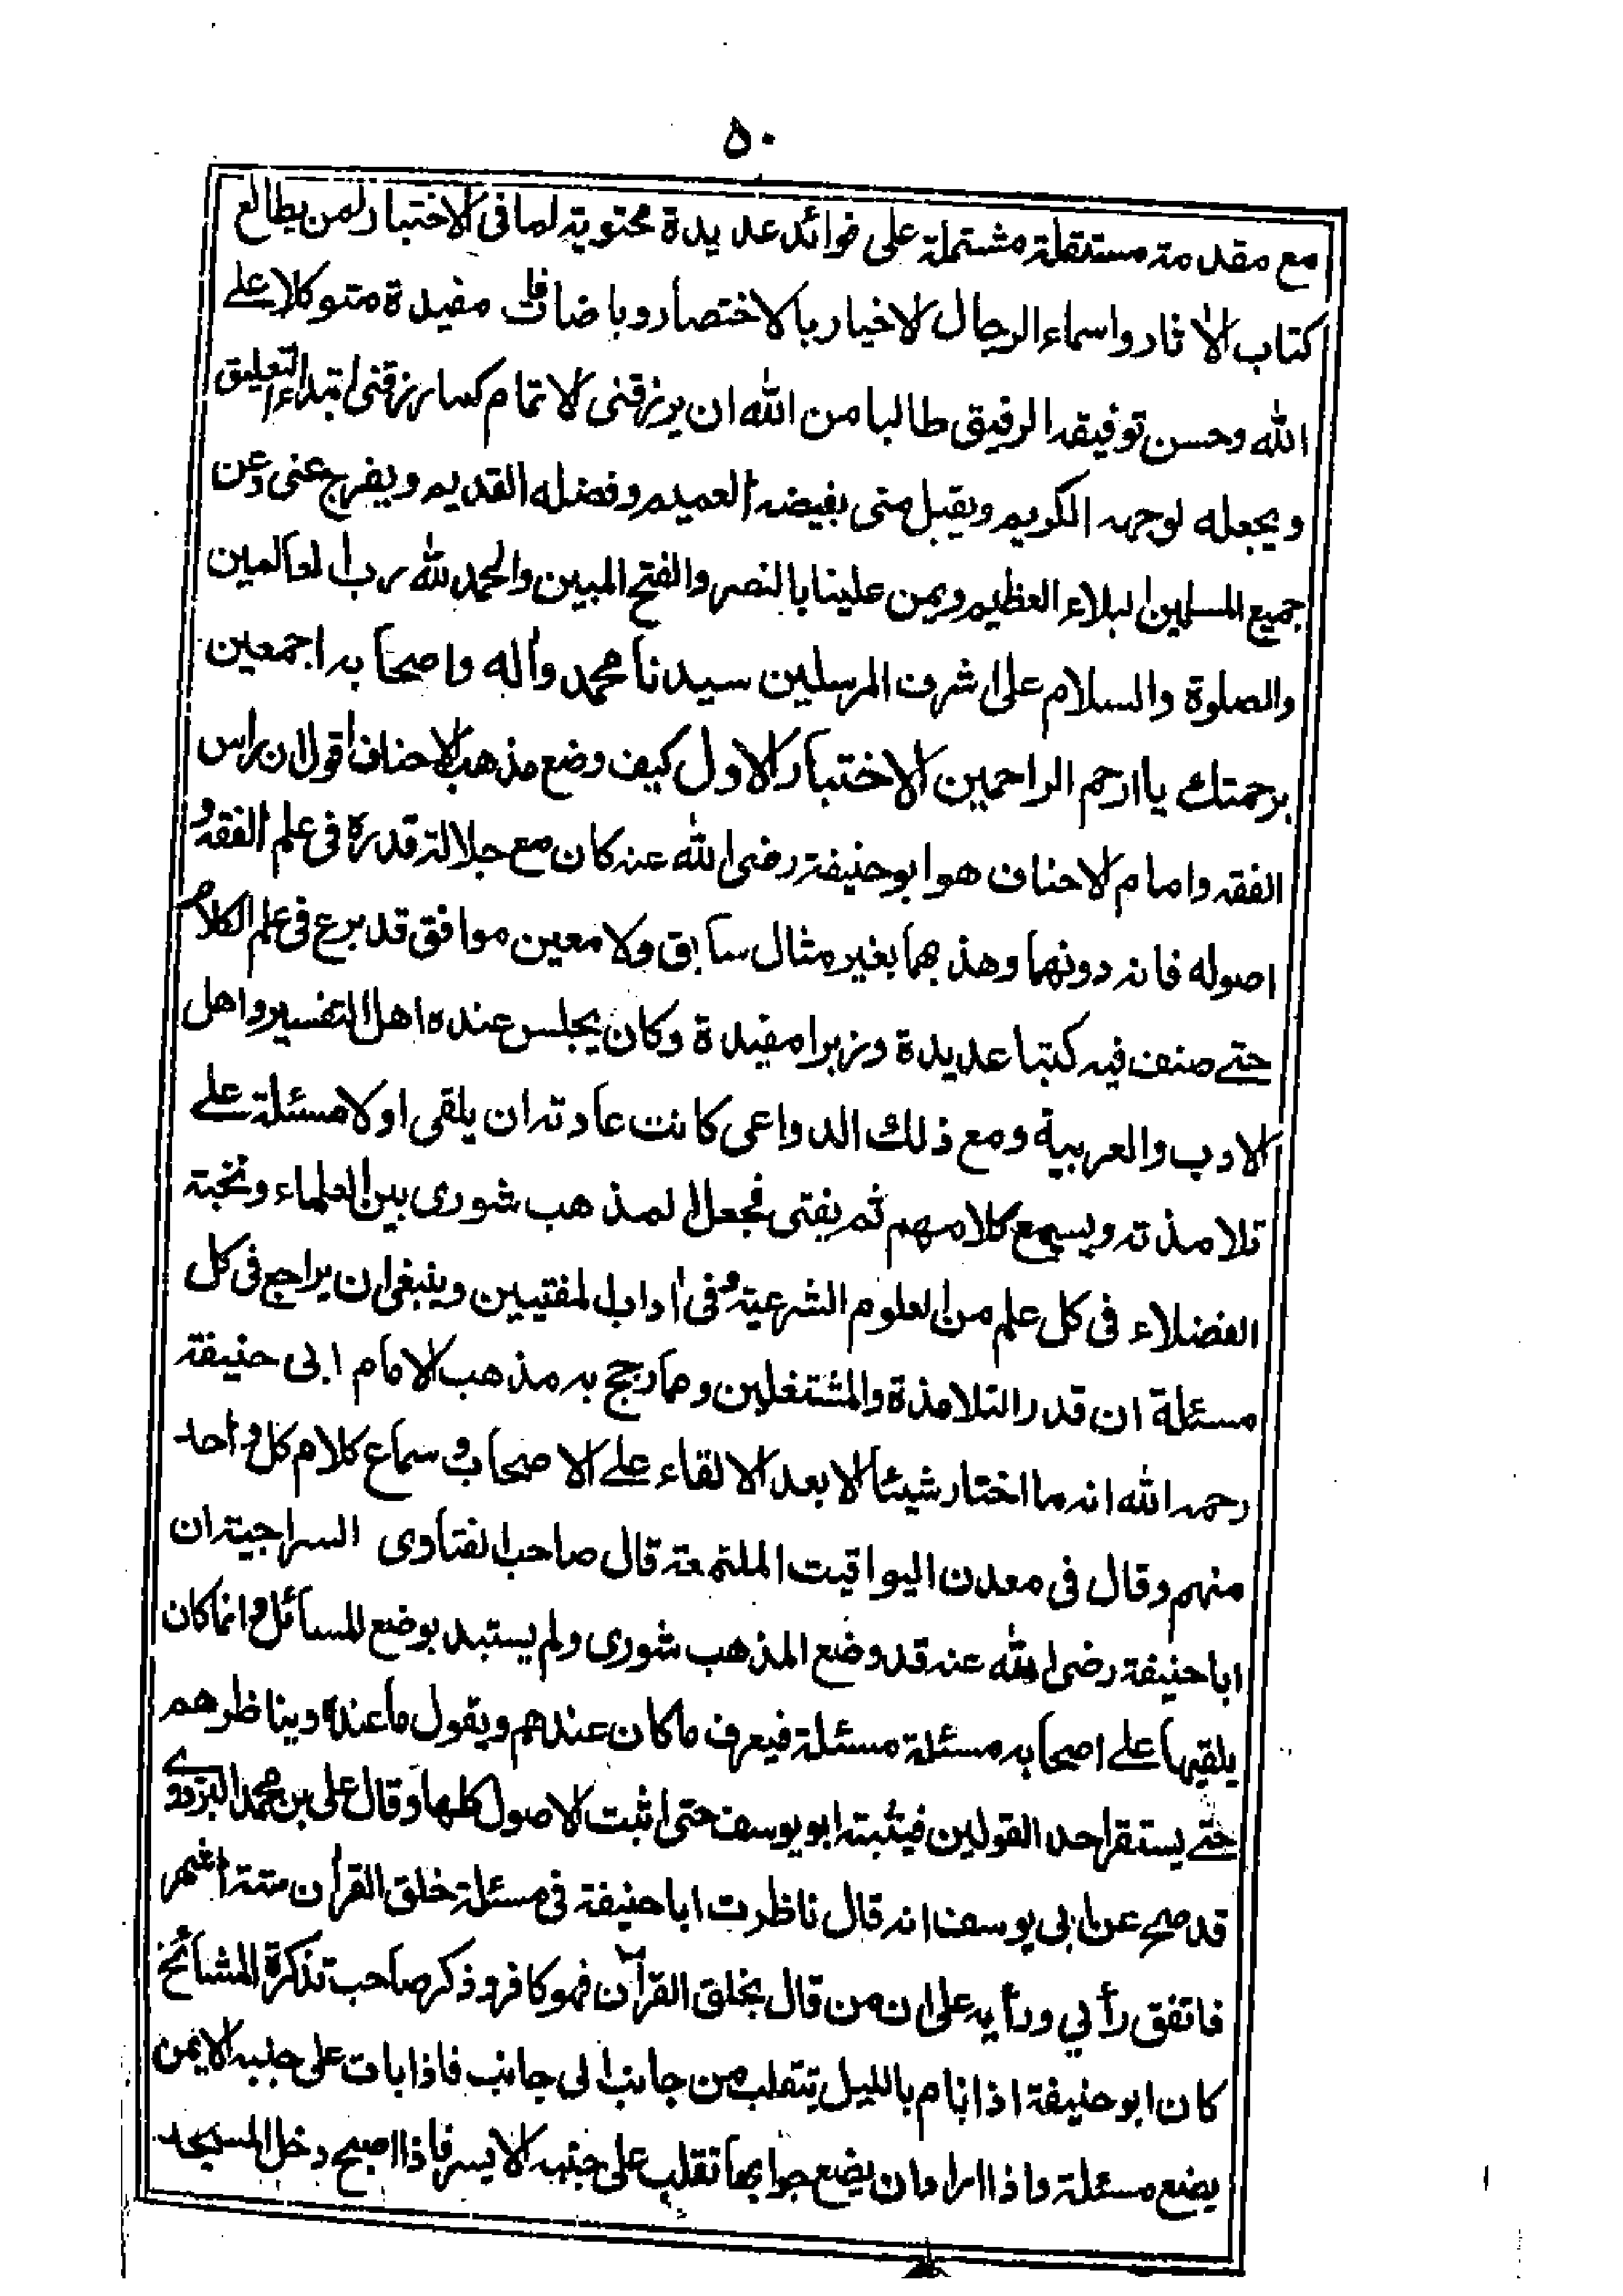 ٥٠
مع مقدمة مستقلة مشتملة على فوائد عديدة محتوية لما فى الاختبار لمن يطالع
كتاب الاٰثار واسماء الرجال الاخيار بالاختصار وباضافات مفيدة متوكلا علے
الله وحسن توفيقه الرفيق طالبا من الله ان يرزقنى الاتمام كما رزقنى ابتداء التعليق
ويجعله لوجهه الكريم ويقبل منى بفيضه العميم وفضله القديم ويفرج عنى وعن
جميع المسلمين البلاء العظيم ويمن علينا بالنصر والفتح المبين والحمد لله رب العالمين
والصلوة والسلام على اشرف المرسلين سيدنا محمد واٰله واصحابه اجمعين
برحمتك يا ارحم الراحمين الاختبار الاول كيف وضع مذهب الاحناف اقول ان راس
الفقه وامام الاحناف هو ابو حنيفة رضى الله عنه كان مع جلالة قدره فى علم الفقه و
اصوله فانه دونهما وهذبهما بغير مثال سابق ولا معين موافق قد برع فى علم الكلام
حتے صنف فيه كتبا عديدة وزبرا مفيدة وكان يجلس عنده اهل التفسير واهل
الادب والعربية ومع ذلك الدواعى كانت عادته ان يلقى اولا مسئلة علے
تلامذته ويسمع كلامهم ثم يفتى فجعل المذهب شورى بين العلماء ونخبة
الفضلاء فى كل علم من العلوم الشرعية وفى اٰداب المفتيين وينبغى ان يراجع فى كل
مسئلة ان قدر التلامذة والمشتغلين ومما رجح به مذهب الامام ابى حنيفة
رحمه الله انه ما اختار شيئا الا بعد الالقاء علے الاصحاب و سماع كلام كل واحد
منهم وقال فى معدن اليواقيت الملتمعة قال صاحب الفتاوى السراجية ان
ابا حنيفة رضى الله عنه قد وضع المذهب شورى ولم يستبد بوضع المسائل وانما كان
يلقيها علے اصحابه مسئلة مسئلة فيعرف ما كان عندهم ويقول ما عنده ويناظرهم
حتے يستقر احد القولين فيثبته ابو يوسف حتى اثبت الاصول كلها وقال على بن محمد البزدوى
قد صح عن ابى يوسف انه قال ناظرت ابا حنيفة فى مسئلة خلق القراٰن ستة اشهر
فاتفق رأيي ورأيه على ان من قال بخلق القرآن فهو كافر وذكر صاحب تذكرة المشائخ
كان ابو حنيفة اذا نام بالليل يتقلب من جانب الى جانب فاذا بات على جنبه الايمن
يضع مسئلة واذا اراد ان يضع جوابها تقلب على جنبه الايسر فاذا اصبح دخل المسجد